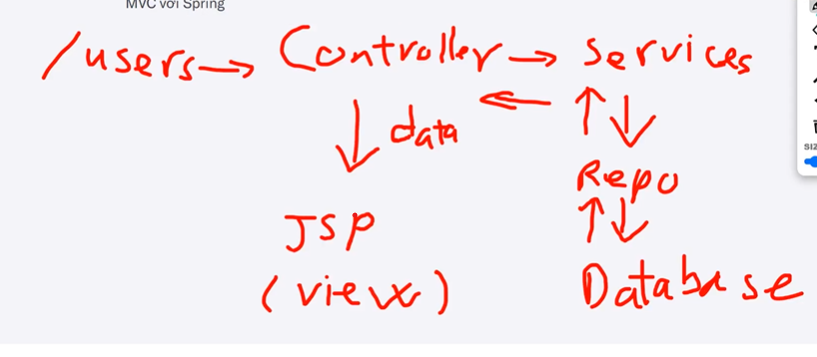 MVC với Spring
/users → Controller → Services
data
Repo
JSP
(view)
Database
SIZ